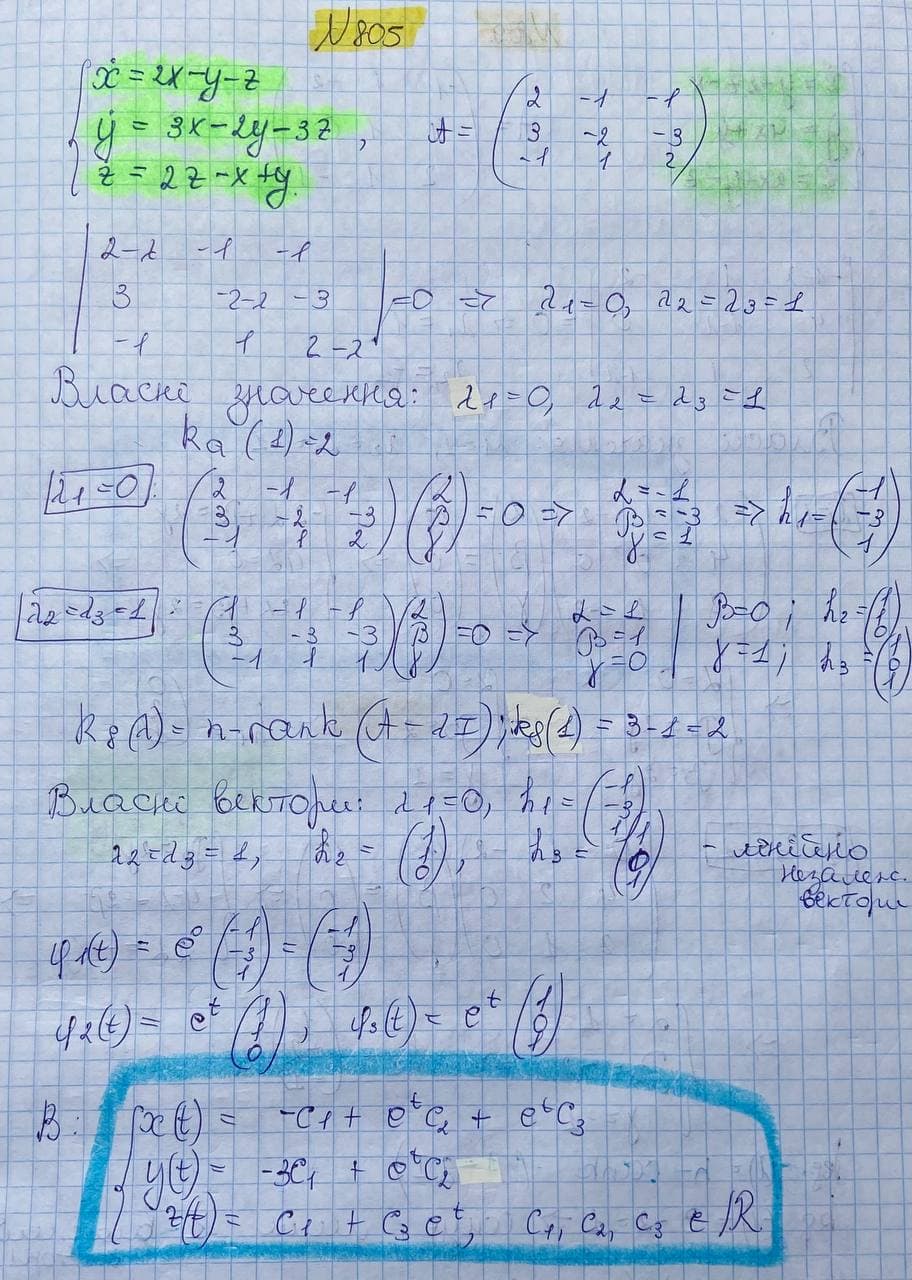 N805
ẋ = 2x-y-z
ẏ = 3x-2y-3z , A = (2 -1 -1; 3 -2 -3; -1 1 2)
ż = 2z-x+y.
|2-λ -1 -1|
|3 -2-λ -3| =0 => λ1=0, λ2=λ3=1
|-1 1 2-λ|
Власні значення: λ1=0, λ2=λ3=1
ka(1)=2
λ1=0: (2 -1 -1; 3 -2 -3; -1 1 2)(α; β; γ) = 0 => α=-1 β=-3 γ=1 => h1=(-1; -3; 1)
λ2=λ3=1: (1 -1 -1; 3 -3 -3; -1 1 1)(α; β; γ) =0 => α=1 β=1 γ=0 | β=0; γ=1; h2=(1; 1; 0) h3=(1; 0; 1)
kg(λ) = n-rank(A-λI); kg(1) = 3-1=2
Власні вектори: λ1=0, h1=(-1; -3; 1)
λ2=λ3=1, h2=(1; 1; 0), h3=(1; 0; 1) - лінійно
незалеж.
вектори
φ1(t) = e⁰(-1; -3; 1) = (-1; -3; 1)
φ2(t) = eᵗ(1; 1; 0), φ3(t) = eᵗ(1; 0; 1)
В: x(t) = -C1 + eᵗC2 + eᵗC3
y(t) = -3C1 + eᵗC2
z(t) = C1 + C3eᵗ, C1, C2, C3 ∈ R